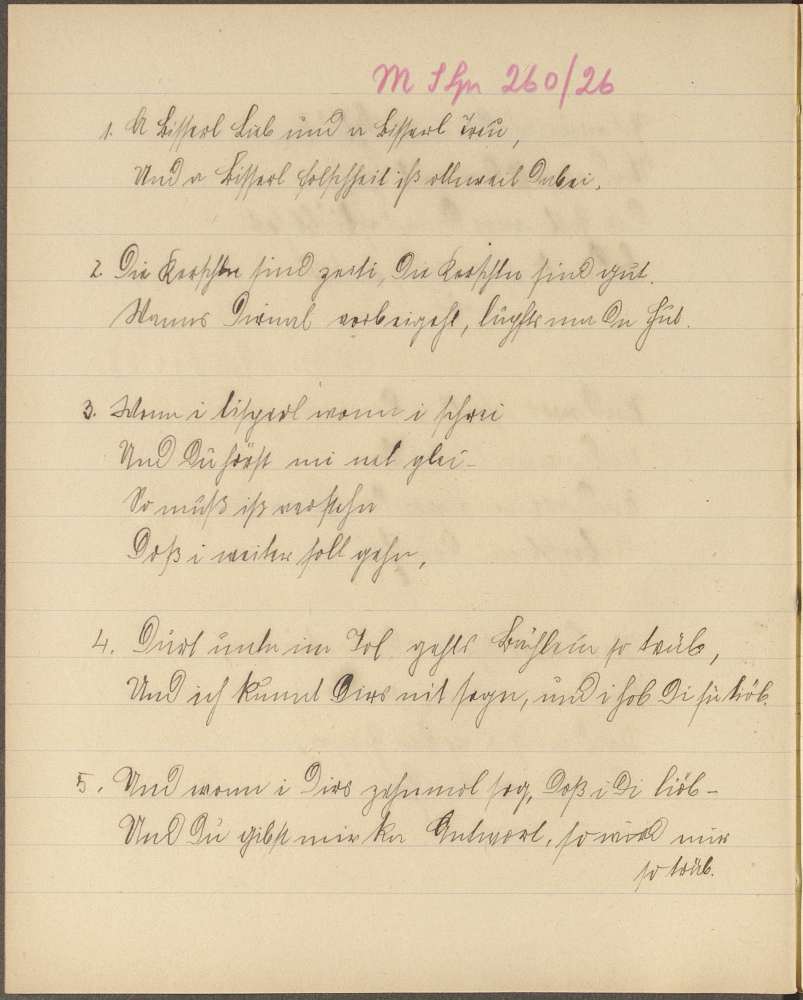 M Shn 260/26
1. A bisserl Lieb und a bisserl Treu,
Und a bisserl Folschheit iß ollerweil dabei.
2. Die Kerschtn sind zeiti, die Kerschtn sind gut.
Wanns Dirnal vorbeigeht, lupfts ma den Hut.
3. Wenn i lisperl wonn i schrei
Und Du hörst mi net glei-
So muß iß verstehn
Doß i weiter soll gehn,
4. Durt untn im Tol gehts Bächlein so trüb,
Und ich kunnt Dirs nit sogn, und i hob Di so liöb.
5. Und wonn i Dirs zehnmol sog, doß i Di liöb-
Und Du gibst mir ka Antwort, so wird mir
so trüb.